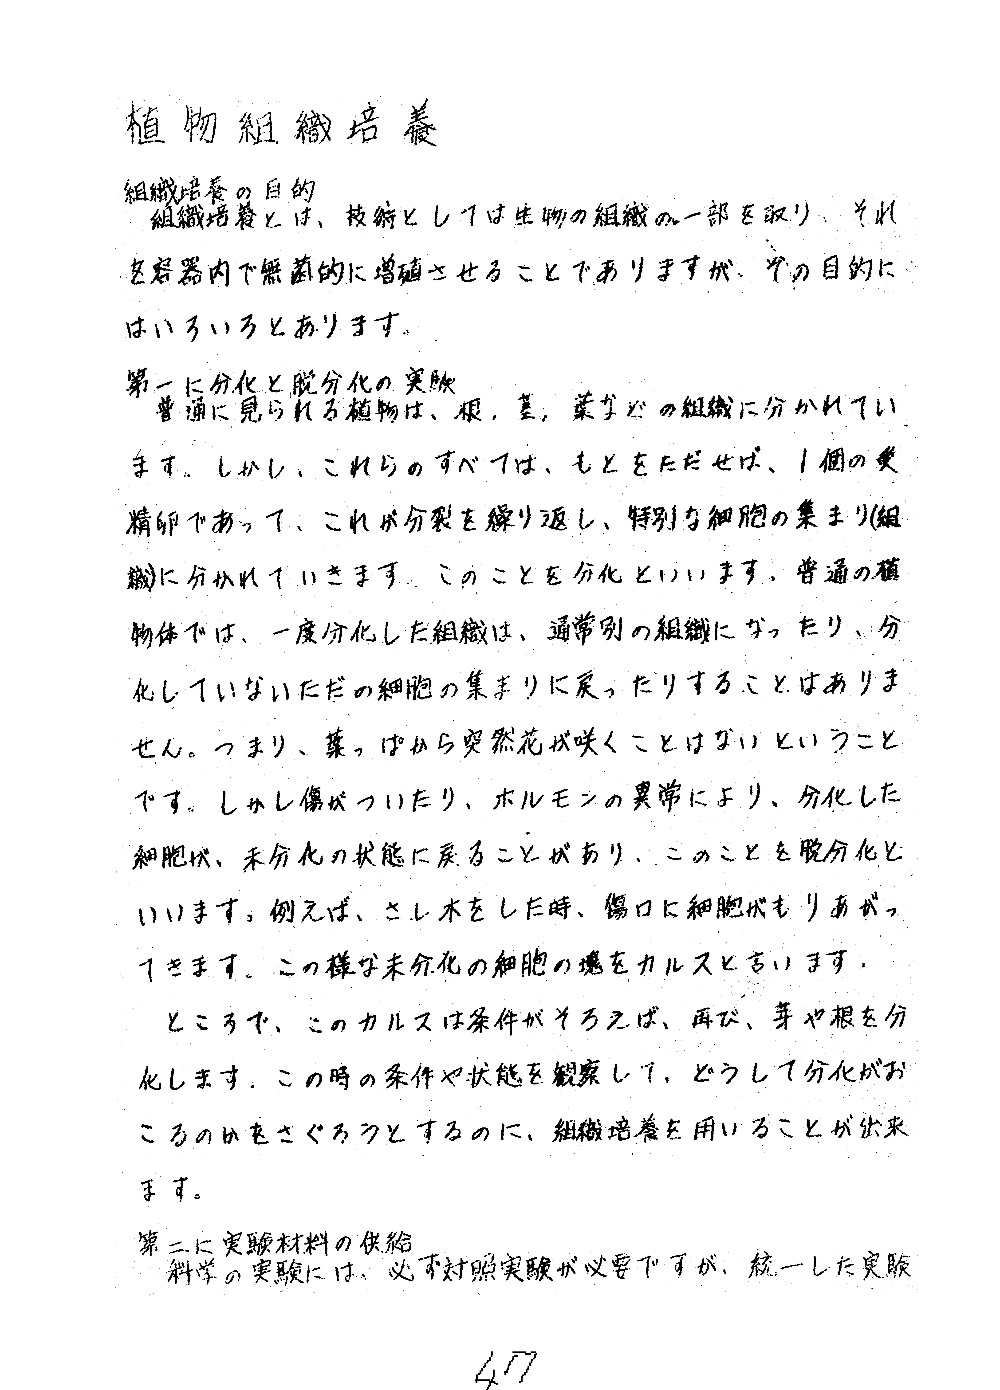 植物組織培養
組織培養の目的
組織培養とは、技術としては生物の組織の一部を取り、それ
を容器内で無菌的に増殖させることでありますが、その目的に
はいろいろとあります。
第一に分化と脱分化の実験
普通に見られる植物は、根、茎、葉などの組織に分かれてい
ます。しかし、これらのすべては、もとをただせば、1個の受
精卵であって、これが分裂を繰り返し、特別な細胞の集まり(組
織)に分かれていきます。このことを分化といいます。普通の植
物体では、一度分化した組織は、通常別の組織になったり、分
化していないただの細胞の集まりに戻ったりすることはありま
せん。つまり、葉っぱから突然花が咲くことはないということ
です。しかし傷がついたり、ホルモンの異常により、分化した
細胞が、未分化の状態に戻ることがあり、このことを脱分化と
いいます。例えば、さし木をした時、傷口に細胞がもりあがっ
てきます。この様な未分化の細胞の塊をカルスと言います。
ところで、このカルスは条件がそろえば、再び、芽や根を分
化します。この時の条件や状態を観察して、どうして分化がお
こるのかをさぐろうとするのに、組織培養を用いることが出来
ます。
第二に実験材料の供給
科学の実験には、必ず対照実験が必要ですが、統一した実験
47